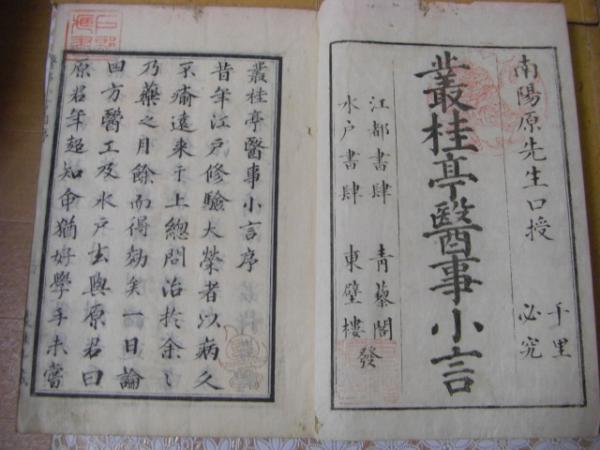 南陽原先生口授
千里必究
叢桂亭醫事小言
江都書肆 青藜閣
水戸書肆 東壁樓
發
叢桂亭醫事小言序
昔年江戸修驗大榮者以病久
不瘉遠来于上總問治於余〻
乃藥之月餘而得効矣一日論
四方醫工及水戸玄與原君曰
原君年超知命猶好學手未嘗